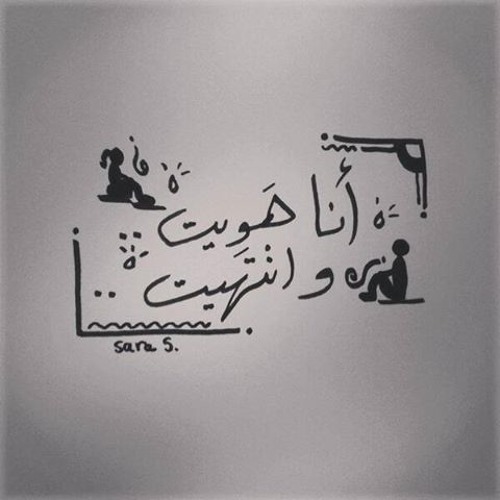 أنا هَويت
و انتَهيت ..
sara S.